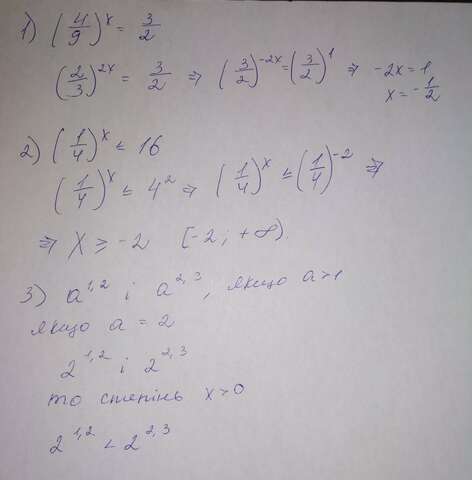 1) (4/9)^x = 3/2
(2/3)^2x = 3/2 ⇒ (3/2)^-2x = (3/2)^1 ⇒ -2x = 1
x = -1/2
2) (1/4)^x ≤ 16
(1/4)^x ≤ 4^2 ⇒ (1/4)^x ≤ (1/4)^-2 ⇒
⇒ x ≥ -2 [-2; +∞).
3) a^1,2 і a^2,3, якщо a>1
якщо a = 2
2^1,2 і 2^2,3
то степінь x>0
2^1,2 < 2^2,3